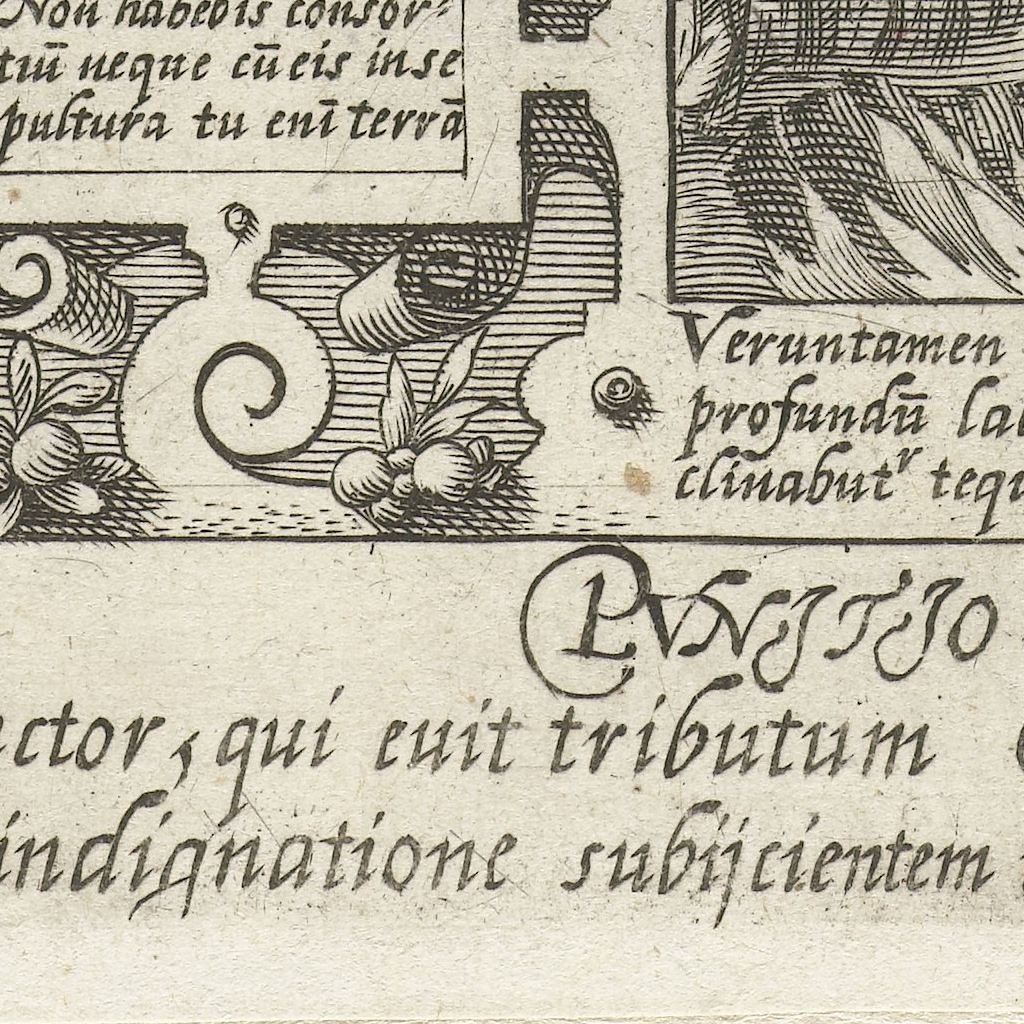 Non habebis consor-
tiū neque cū eis in se
pultura tu enī terrā
Veruntamen
profundū lac
clinabutʳ tequ
PVNITIO
ctor, qui euit tributum
indignatione subijcientem